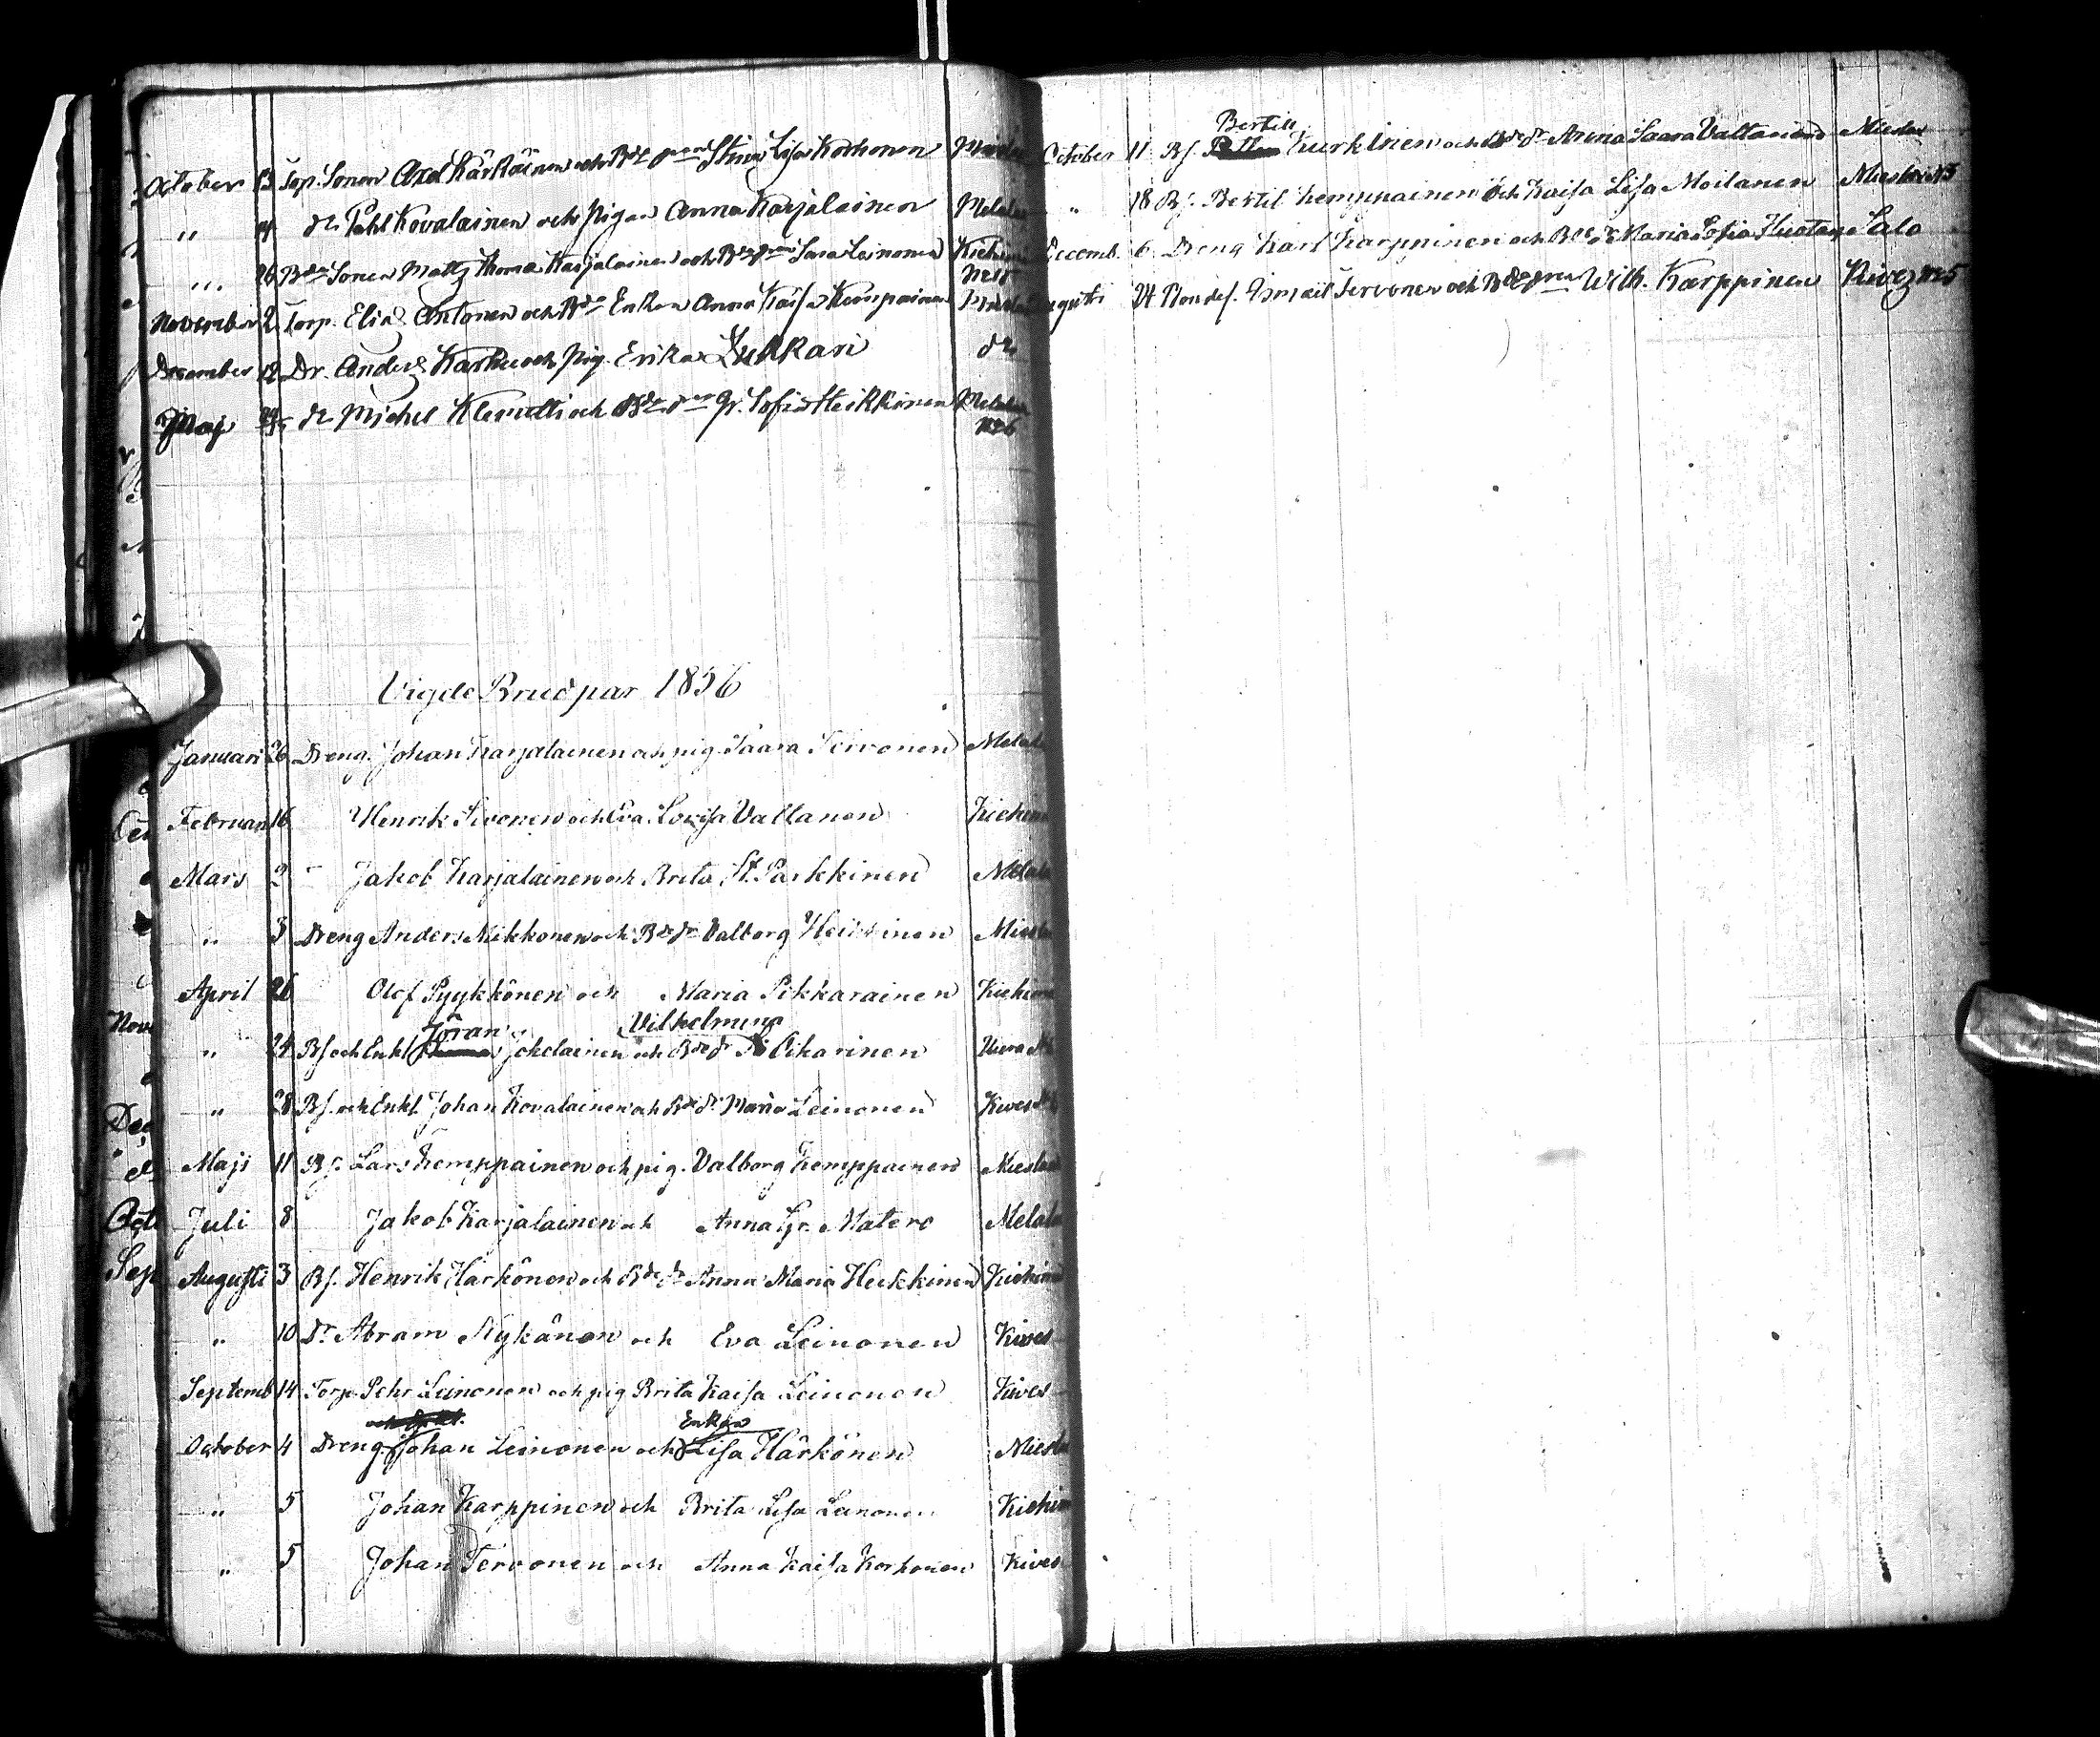 October 13 Torp. Sonen Axel Kärkäinen och Bde dren Stina Lisa Korhonen
" 14 dr Påhl Kovalainen och Pigan Anna Karjalainen Melala
" 26 Bde Sonen Matts Thomas Karjalainen och Bde dren Sara Leinonen Kiehim
November 2 Torp. Elias Antonen och Bde Enkan Anna Kaisa Kemppainen
December 12 Dr. Anders Karhu och Pig. Erika Lukkari do
Maj dr Michel Klemetti och Bde dren Gr. Sofia Heikkinen Melala
No 6
Vigde Brudpar 1856
Januari 26 Dreng. Johan Karjalainen och pig. Saara Tervonen Melala
Februari 16 Henrik Sivonen och Eva Lovisa Valtanen Kiehim
Mars 2 Jakob Karjalainen och Brita St. Parkkinen Melala
" 3 Dreng Anders Mikkonen och Bde dr Valborg Heikkinen Miesla
April 26 Olof Pyykkönen och Maria Pikkarainen Kiehim
Jöran Vilhelmina
" 24 Bf och Enkl Jokelainen och Bde dr Oikarinen
" 28 Bf. och Enkl. Johan Kovalainen och Bde dr Maria Leinonen Kives
Maji 11 Bf. Lars Kemppainen och pig. Valborg Kemppainen Miesla
Juli 8 Jakob Karjalainen och Anna Gr. Matero Melala
Augusti 3 Bf. Henrik Härkönen och Bde dr Anna Maria Heikkinen Kiehim
" 10 Dr Abram Nykänen och Eva Leinonen Kives
Septemb 14 Torp. Pehr Leinonen och pig Brita Kaisa Leinonen Kives
och Enkl. Enkan
October 4 Dreng. Johan Leinonen och Lisa Härkönen Miesla
" 5 Johan Karppinen och Brita Lisa Leinonen Kiehim
" 5 Johan Tervonen och Anna Kaisa Korhonen Kives
Bertill
October 11 Bf. Kurkinen och Bde dr Anna Saara Valtanen Miesla
" 18 Bf. Bertil Kemppainen och Kaisa Lisa Moilanen Miesla
Decemb. 6 Dreng Karl Karppinen och Bde dr Maria Sofia Huotari Salo
Augusti 24 Bondes. Ismaël Tervonen och Bde dren Wilh. Karppinen Kives No 5